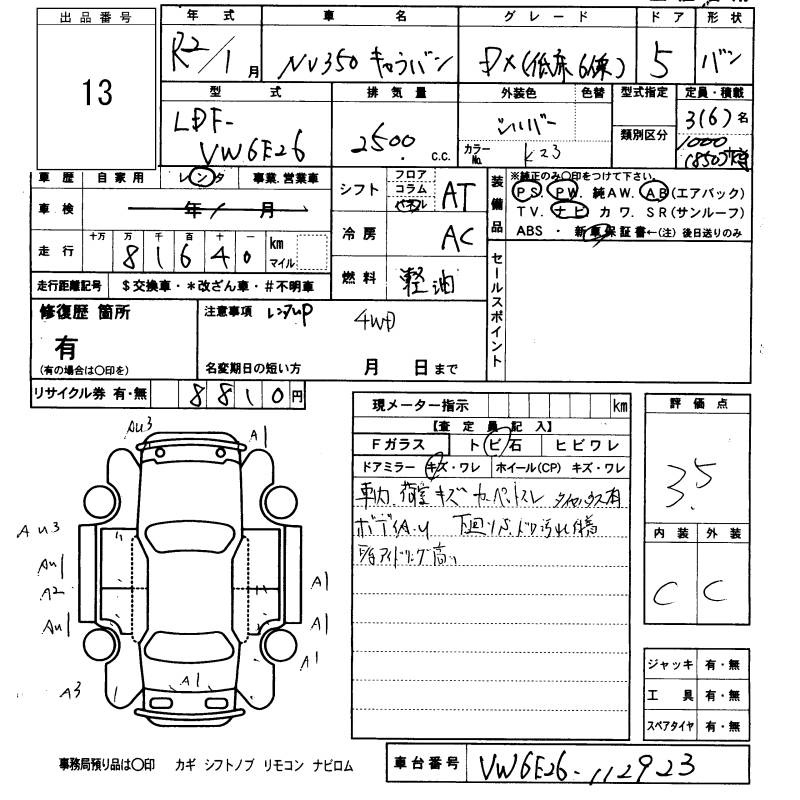 出品番号
13
年式
R2/1月
車名
NV350 キャラバン
グレード
DX(低床6体)
ドア
5
形状
バン
型式
LDF-
VW6E26
排気量
2500 c.c.
外装色
シルバー
色替
カラーNo.
K23
型式指定
類別区分
定員・積載
3(6)名
1000
(850)
車歴 自家用 レンタ 事業.営業車
車検 年 月
走行 十万 万 千 百 十 一
8 1 6 4 0 km マイル
走行距離記号 $交換車・*改ざん車・#不明車
シフト フロア コラム パネル AT
冷房 AC
燃料 軽油
装備品
※純正のみ〇印をつけて下さい。
PS. PW. 純AW. AB(エアバック)
TV. ナビ カワ. SR(サンルーフ)
ABS ・ 新車保証書←(注) 後日送りのみ
セールスポイント
修復歴 箇所
有
(有の場合は〇印を)
注意事項 レンタup 4WD
名変期日の短い方 月 日まで
リサイクル券 有・無 8810円
現メーター指示 km
【査定員記入】
Fガラス トビ石 ヒビワレ
ドアミラー キズ・ワレ ホイール(CP) キズ・ワレ
車内、荷室キズ
ボディA.U 下回り
高い
評価点
3.5
内装 外装
C C
Au3
A1
Au3
Au1
A2
Au1
A3
A1
A1
A1
A1
ジャッキ 有・無
工具 有・無
スペアタイヤ 有・無
事務局預り品は〇印 カギ シフトノブ リモコン ナビロム
車台番号 VW6E26-112923